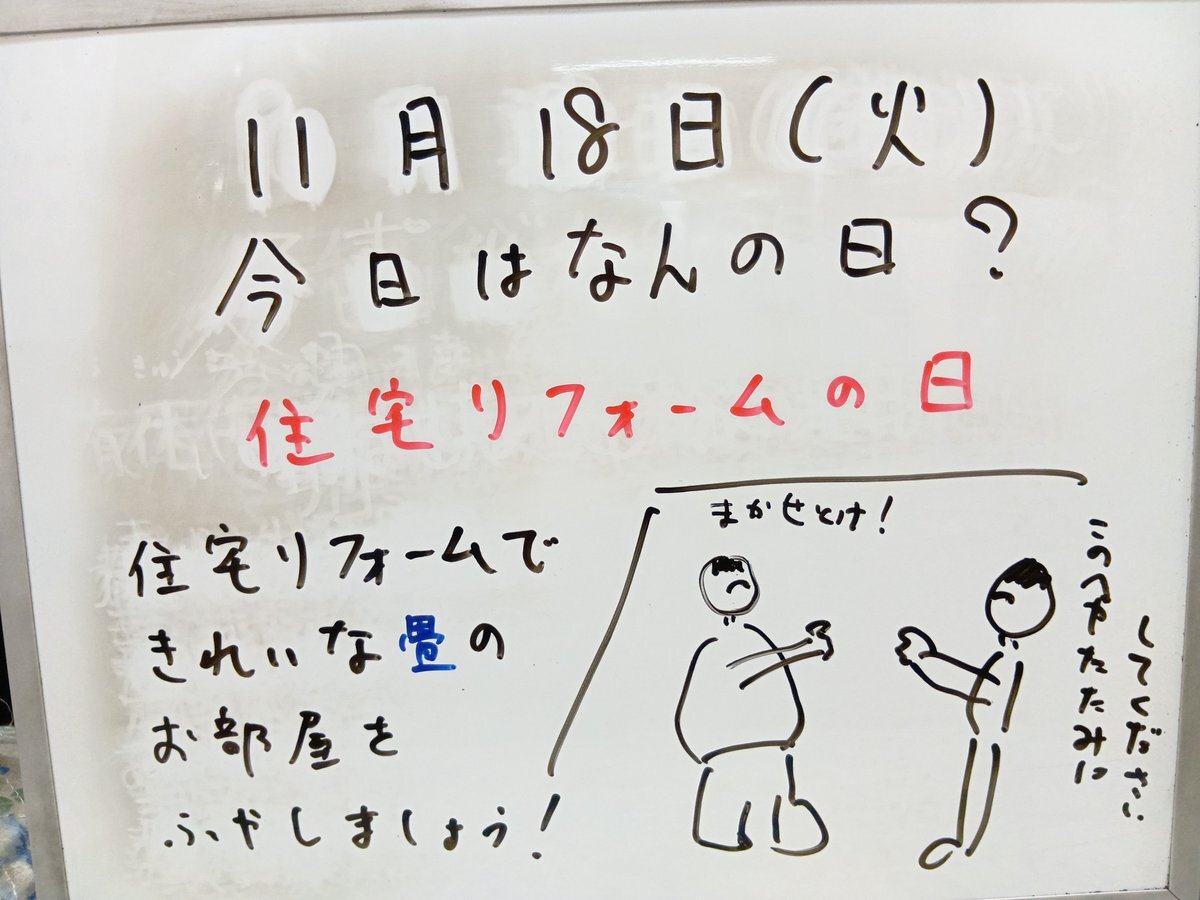 11月18日(火)
今日はなんの日?
住宅リフォームの日
住宅リフォームで
きれいな畳の
お部屋を
ふやしましょう!
まかせとけ!
このへやたたみに
してください